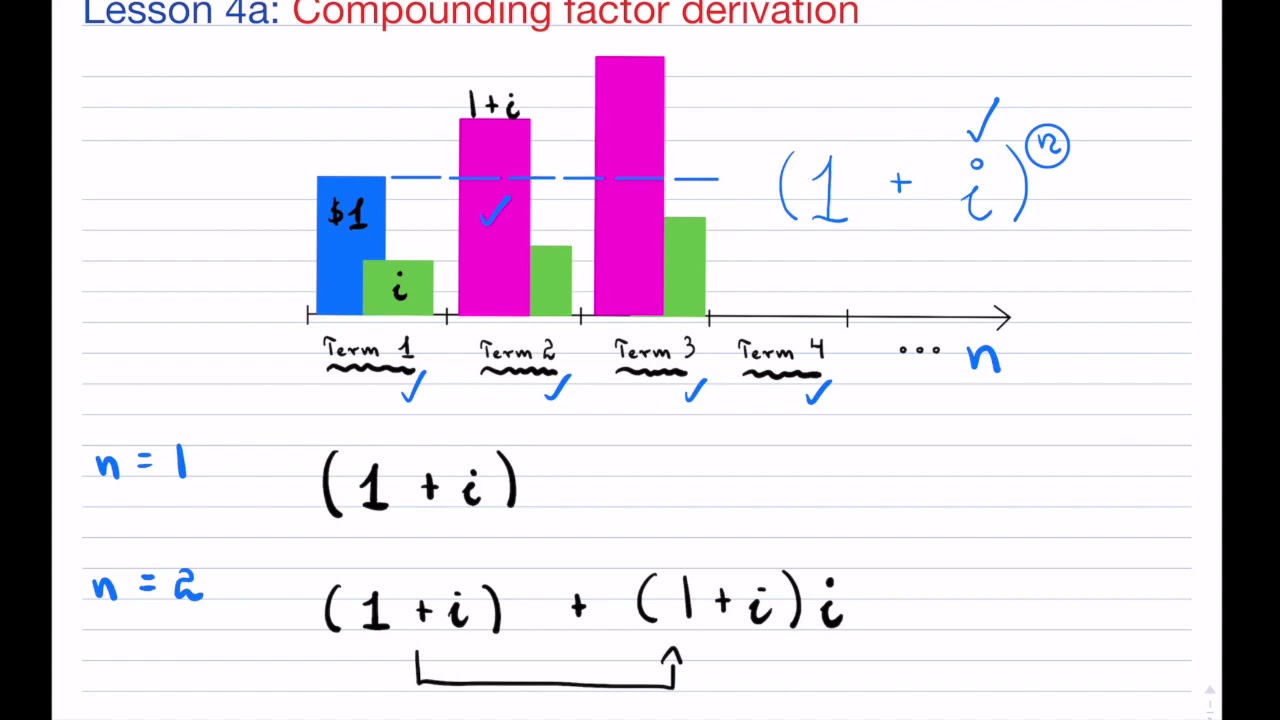 Lesson 4a: Compounding factor derivation
1+i
(1 + i)ⁿ
$1
i
Term 1 Term 2 Term 3 Term 4 ... n
n = 1 (1 + i)
n = 2 (1 + i) + (1+i)i